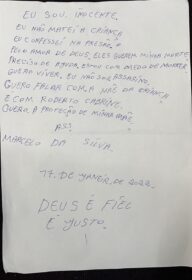 EU SOU. INOCENTE.
EU NÃO MATEI A CRIANÇA
EU CONFESSEI NA PRESSÃO.
PELO AMOR DE DEUS, ELES QUEREM MINHA MORTE
PRECISO DE AJUDA. ESTOU COM MEDO DE MORRER
QUERO VIVER. EU NÃO SOU ASSASSINO.
QUERO FALAR COM A MÃE DA CRIANÇA
E COM ROBERTO CABRINE.
QUERO A PROTEÇÃO DE MINHA MÃE
ASS:
MARCELO DA SILVA.
17. DE JANEIR, DE 2022.
DEUS É FIEL
E JUSTO.